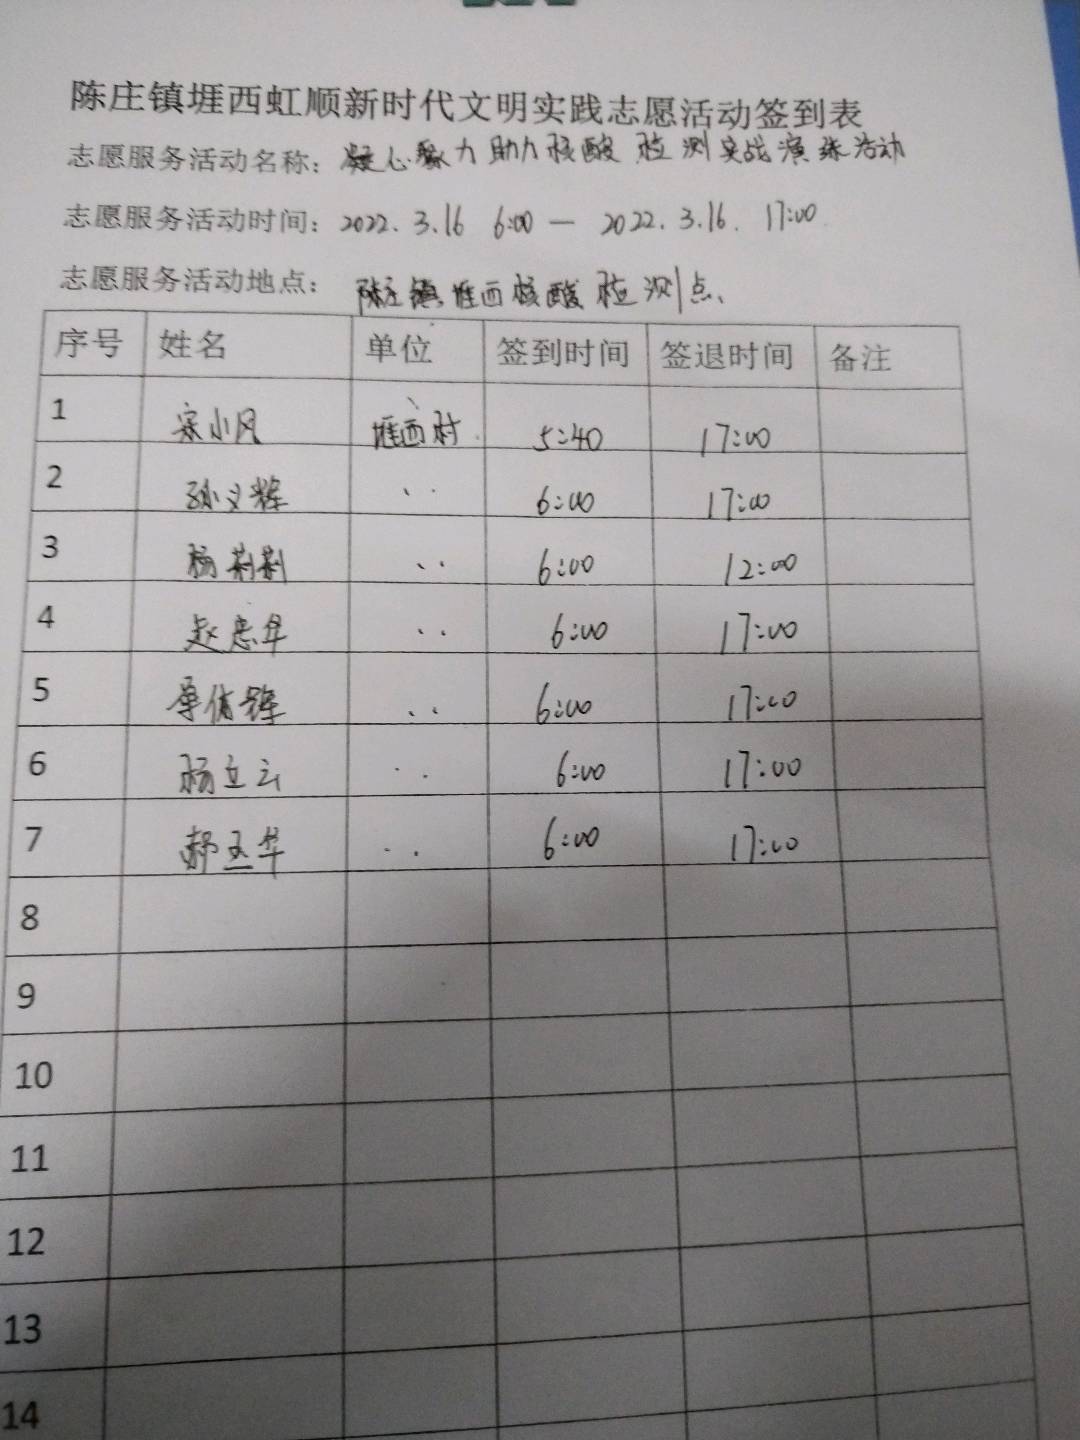 陈庄镇堐西虹顺新时代文明实践志愿活动签到表
志愿服务活动名称：凝心聚力 助力核酸检测实战演练活动
志愿服务活动时间：2022.3.16 6:00 — 2022.3.16. 17:00
志愿服务活动地点： 陈庄镇堐西核酸检测点、
序号 姓名 单位 签到时间 签退时间 备注
1 宋小风 堐西村 5:40 17:00
2 孙义辉 .. 6:00 17:00
3 杨 .. 6:00 12:00
4 赵忠华 .. 6:00 17:00
5 .. 6:00 17:00
6 杨立云 .. 6:00 17:00
7 郝玉华 .. 6:00 17:00
8
9
10
11
12
13
14